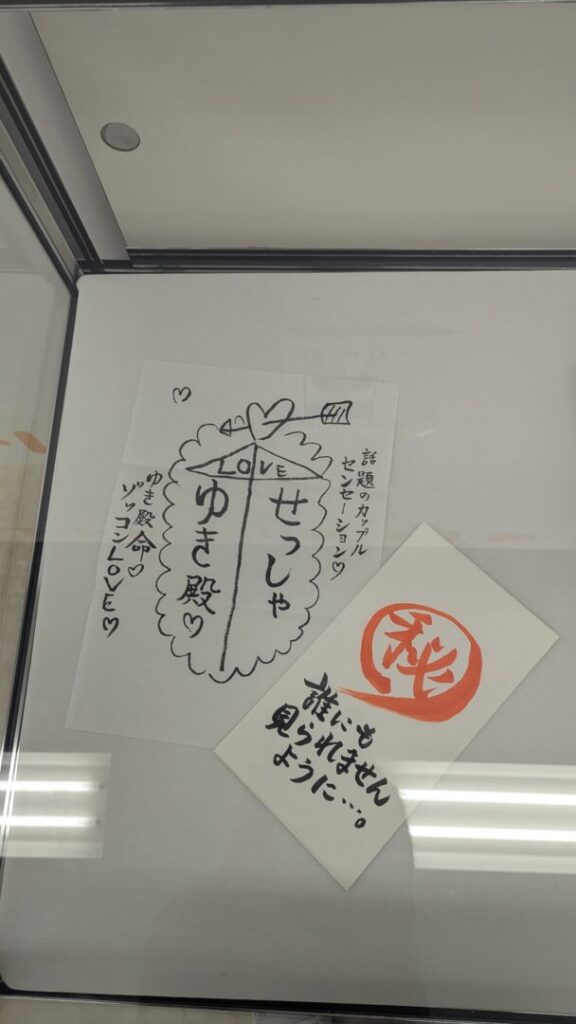 話題のカップル
センセーション♡
LOVE
せっしゃ
ゆき殿♡
ゆき殿命♡
ゾッコンLOVE♡
秘
誰にも
見られません
ように…。